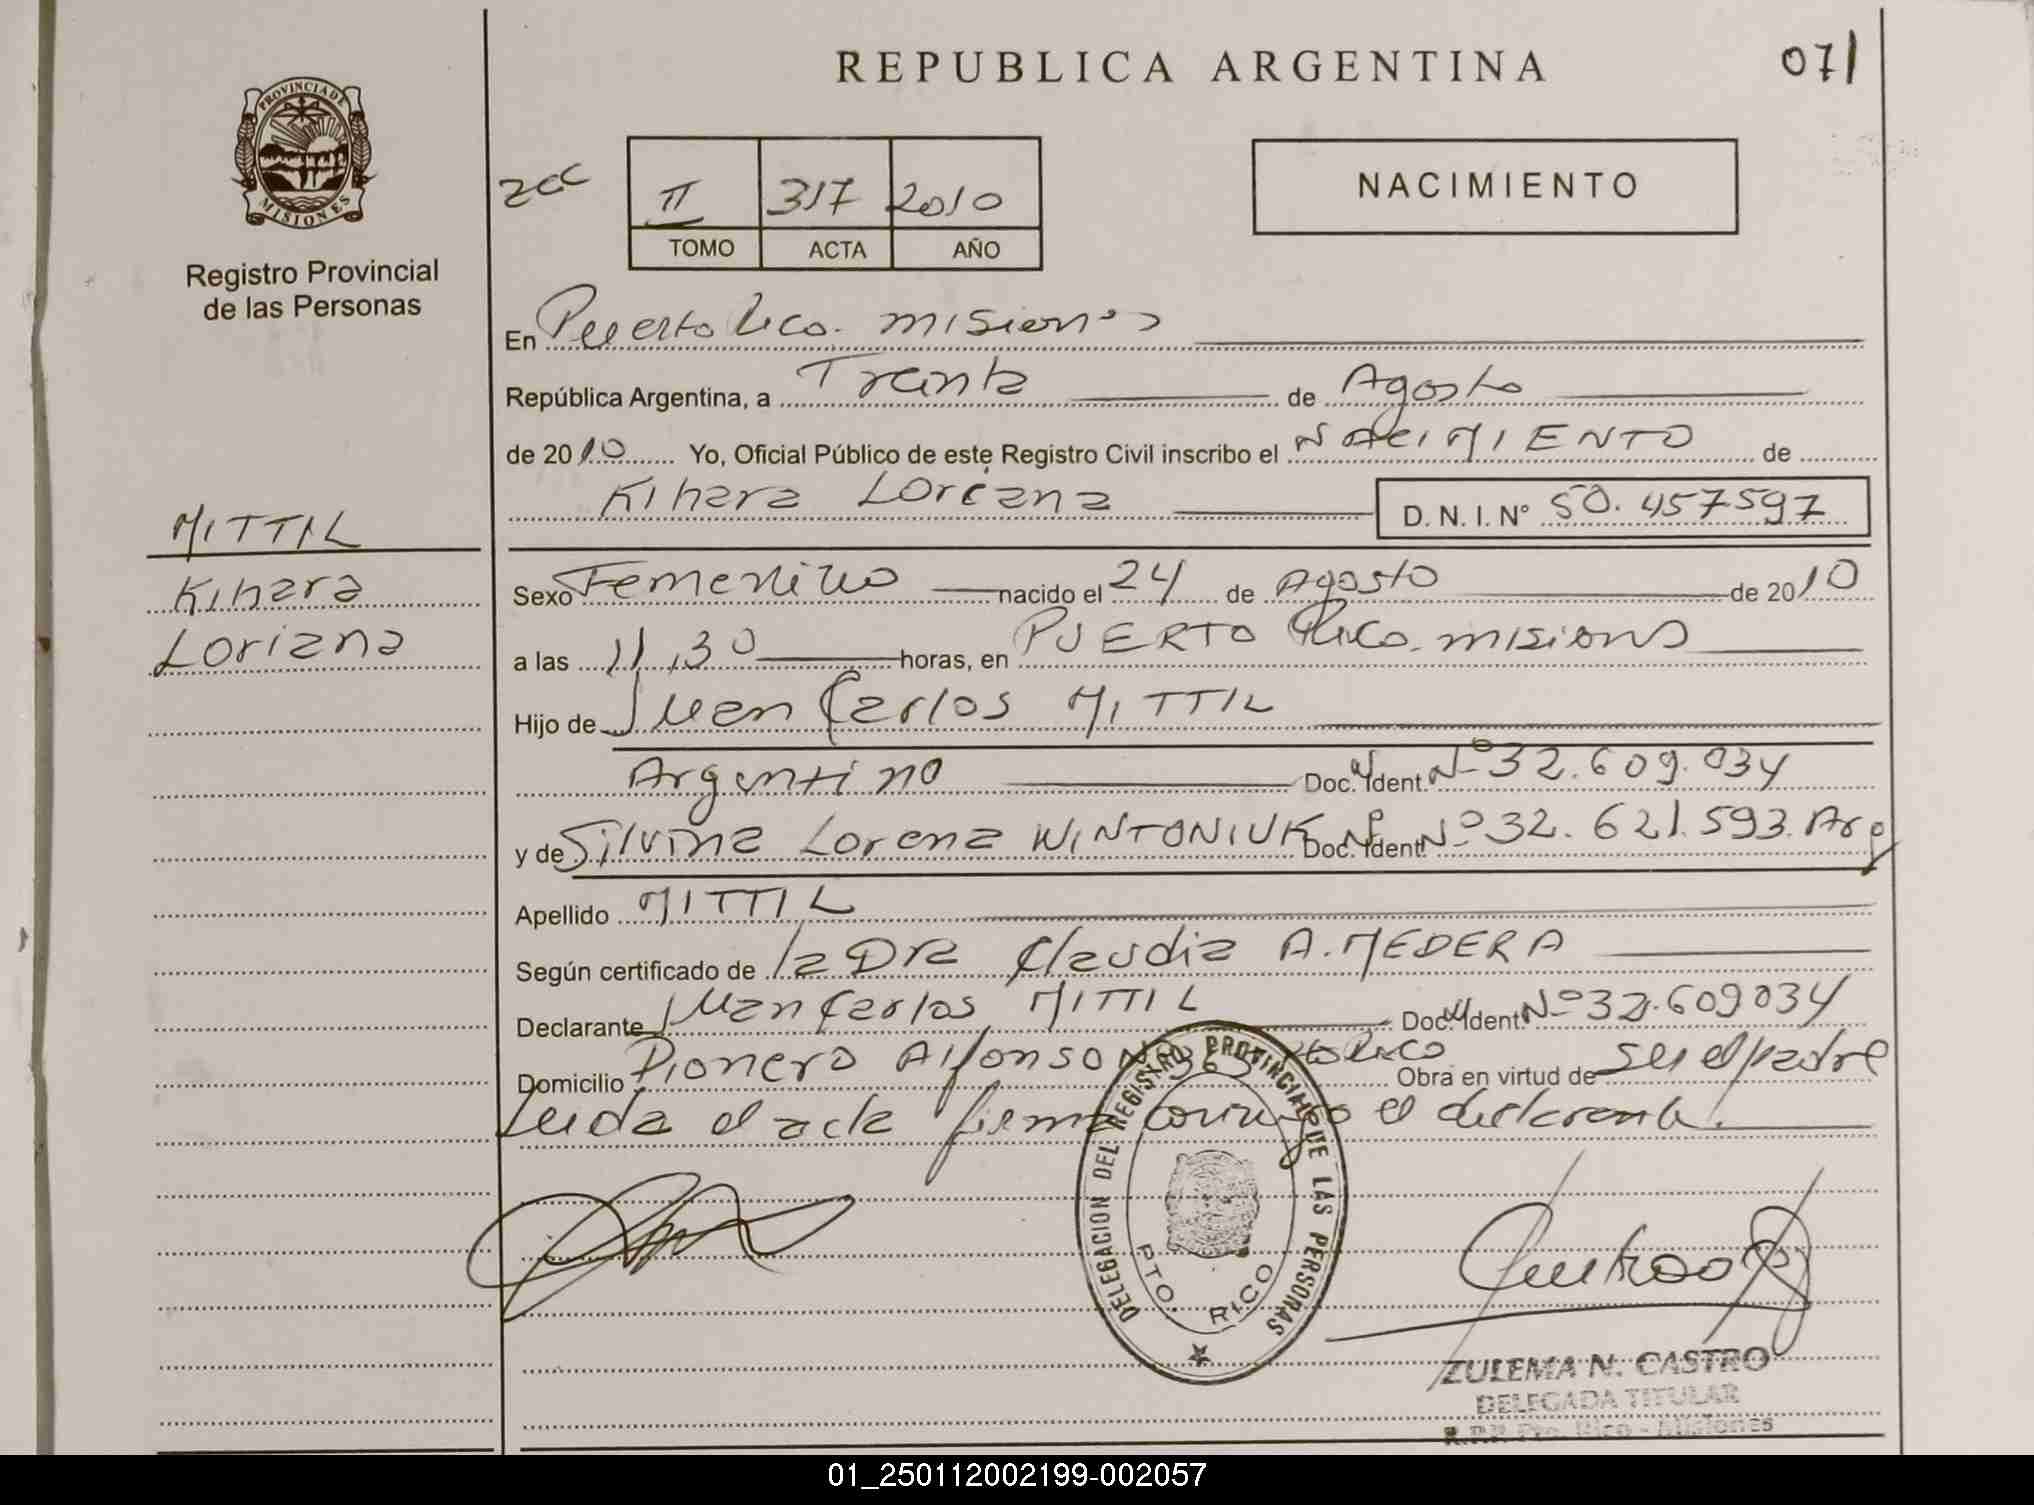 REPUBLICA ARGENTINA
071
PROVINCIA DE
MISIONES
Registro Provincial
de las Personas
II 317 2010
TOMO ACTA AÑO
NACIMIENTO
En Puerto Rico. Misiones
República Argentina, a Treinta de Agosto
de 2010 Yo, Oficial Público de este Registro Civil inscribo el NACIMIENTO de
Kihara Loriana D. N. I. N° 50.457597
MITTIL
Kihara
Loriana
Sexo Femenino nacido el 24 de Agosto de 2010
a las 11,30 horas, en PUERTO Rico. misiones
Hijo de Juan Carlos MITTIL
Argentino Doc. Ident. Nº 32.609.034
y de Silvina Lorena WINTONIUK Doc. Ident. Nº 32.621.593. Arg
Apellido MITTIL
Según certificado de la DRa Claudia A. MEDERA
Declarante Juan Carlos MITTIL Doc. Ident. Nº 32.609034
Domicilio Pionero Alfonso Nº 363 Pto Rico Obra en virtud de ser el padre
Leida el acta firma conmigo el declarante.
DELEGACION DEL REGISTRO PROVINCIAL DE LAS PERSONAS
PTO. RICO
ZULEMA N. CASTRO
DELEGADA TITULAR
R.P.P. Pto. Rico - Misiones
01_250112002199-002057